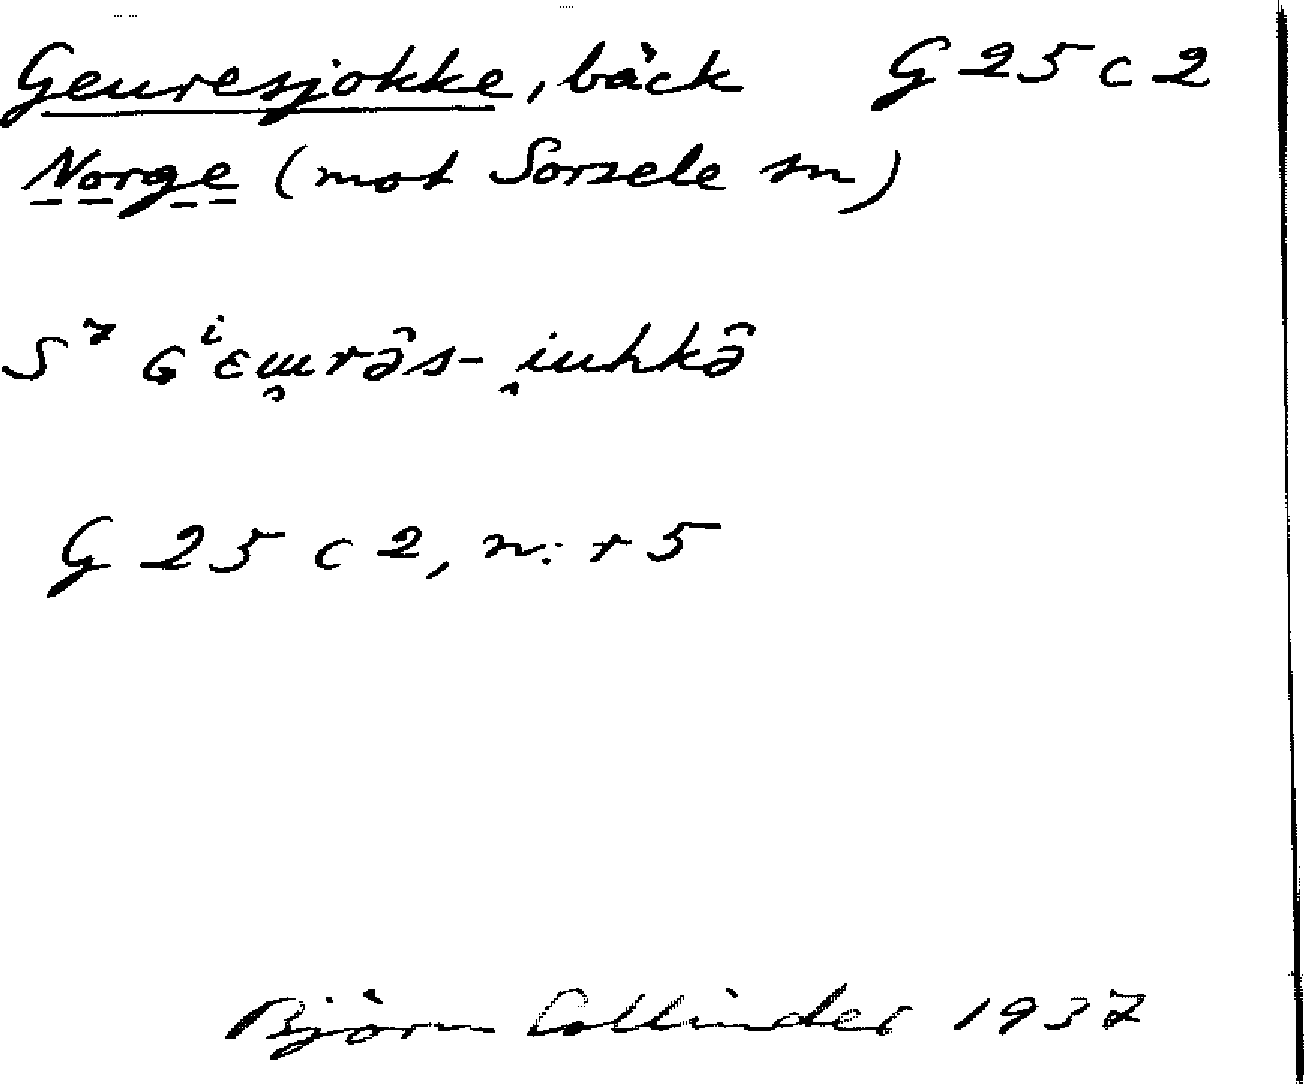 Geuresjokke, bäck G 25 c 2
Norge (mot Sorsele sn)
S⁷ Gⁱɛɯ̯rə̂s-i̯uhkə̂
G 25 c 2, n. r 5
Björn Collinder 1937